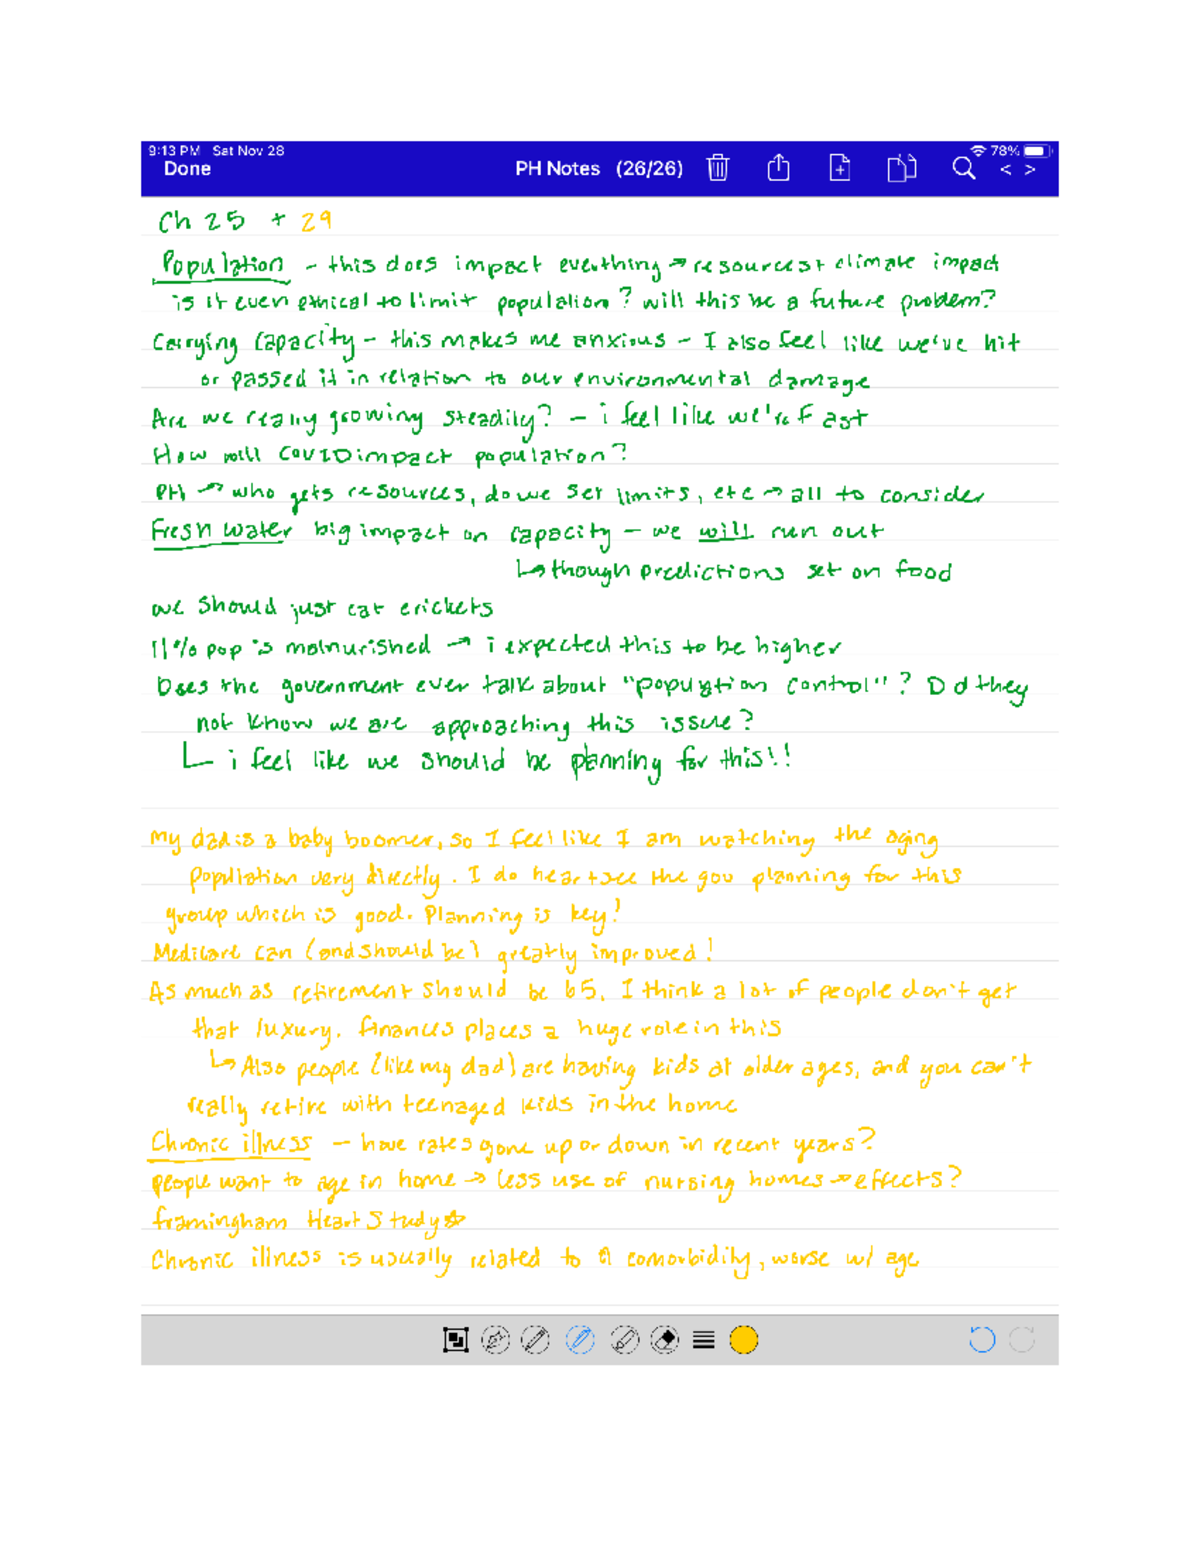 9:13 PM Sat Nov 28
78%
Done
PH Notes (26/26)
< >
Ch 25 + 29
Population - this does impact everthing → resources + climate impact
is it even ethical to limit population? will this be a future problem?
Carrying Capacity - this makes me anxious - I also feel like we've hit
or passed it in relation to our environmental damage
Are we really growing steadily? - i feel like we're fast
How will COVID impact population?
PH → who gets resources, do we set limits, etc → all to consider
Fresh water big impact on capacity - we will run out
↳ though predictions set on food
we should just eat crickets
11% pop is malnurished → i expected this to be higher
Does the government ever talk about "population control"? Do they
not know we are approaching this issue?
i feel like we should be planning for this!!
My dad is a baby boomer, so I feel like I am watching the aging
population very directly. I do hear + see the gov planning for this
group which is good. Planning is key!
Medicare can (and should be) greatly improved!
As much as retirement should be 65, I think a lot of people don't get
that luxury. finances places a huge role in this
↳ Also people (like my dad) are having kids at older ages, and you can't
really retire with teenaged kids in the home
Chronic illness - have rates gone up or down in recent years?
people want to age in home → less use of nursing homes → effects?
framingham Heart Study ☆
Chronic illness is usually related to a comorbidity, worse w/ age